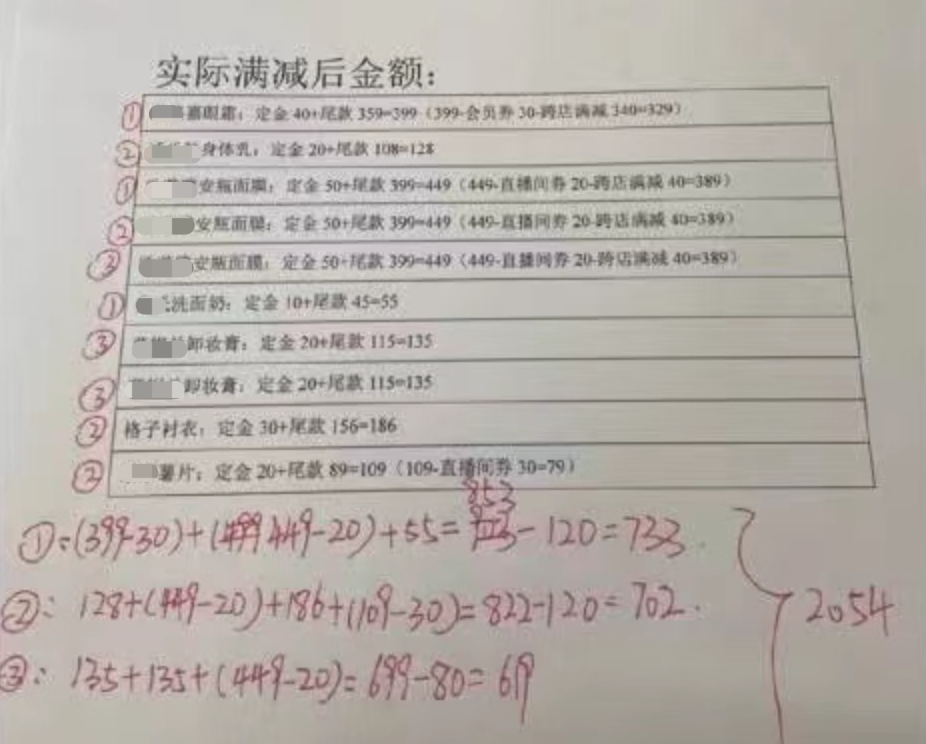 实际满减后金额：
① 嘉眼霜：定金 40+尾款 359=399（399-会员券 30-跨店满减 340=329）
② 身体乳：定金 20+尾款 108=128
① 安瓶面膜：定金 50+尾款 399=449（449-直播间券 20-跨店满减 40=389）
② 安瓶面膜：定金 50+尾款 399=449（449-直播间券 20-跨店满减 40=389）
③ 安瓶面膜：定金 50+尾款 399=449（449-直播间券 20-跨店满减 40=389）
① 洗面奶：定金 10+尾款 45=55
③ 卸妆膏：定金 20+尾款 115=135
③ 卸妆膏：定金 20+尾款 115=135
② 格子衬衣：定金 30+尾款 156=186
② 薯片：定金 20+尾款 89=109（109-直播间券 30=79）
①:(399-30)+(449-20)+55=853-120=733.
②: 128+(449-20)+186+(109-30)=822-120=702.
③: 135+135+(449-20)=699-80=619
2054